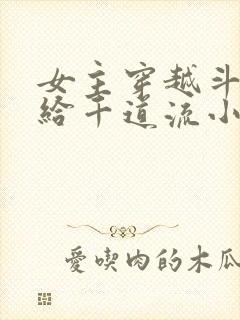 女主穿越斗
给千道流小
愛喫肉的木瓜